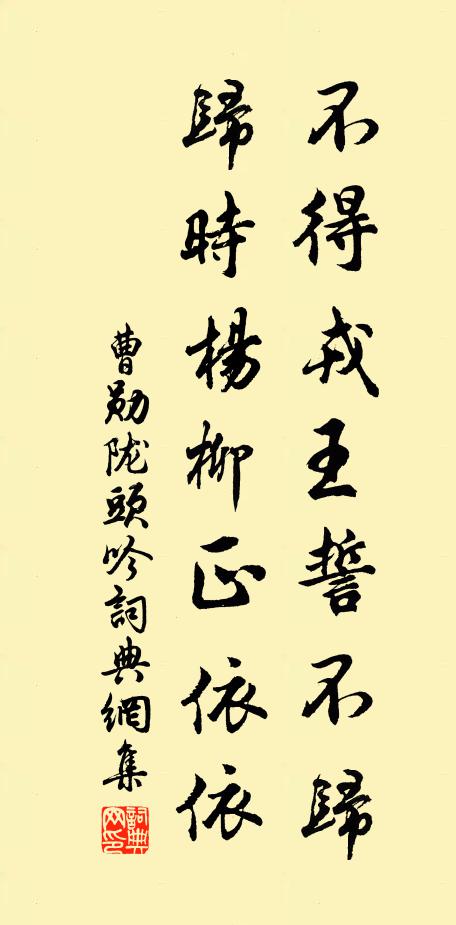 不得戎王誓不歸
歸時楊柳正依依
曹勛陇頭吟詞典網集
詞典網印